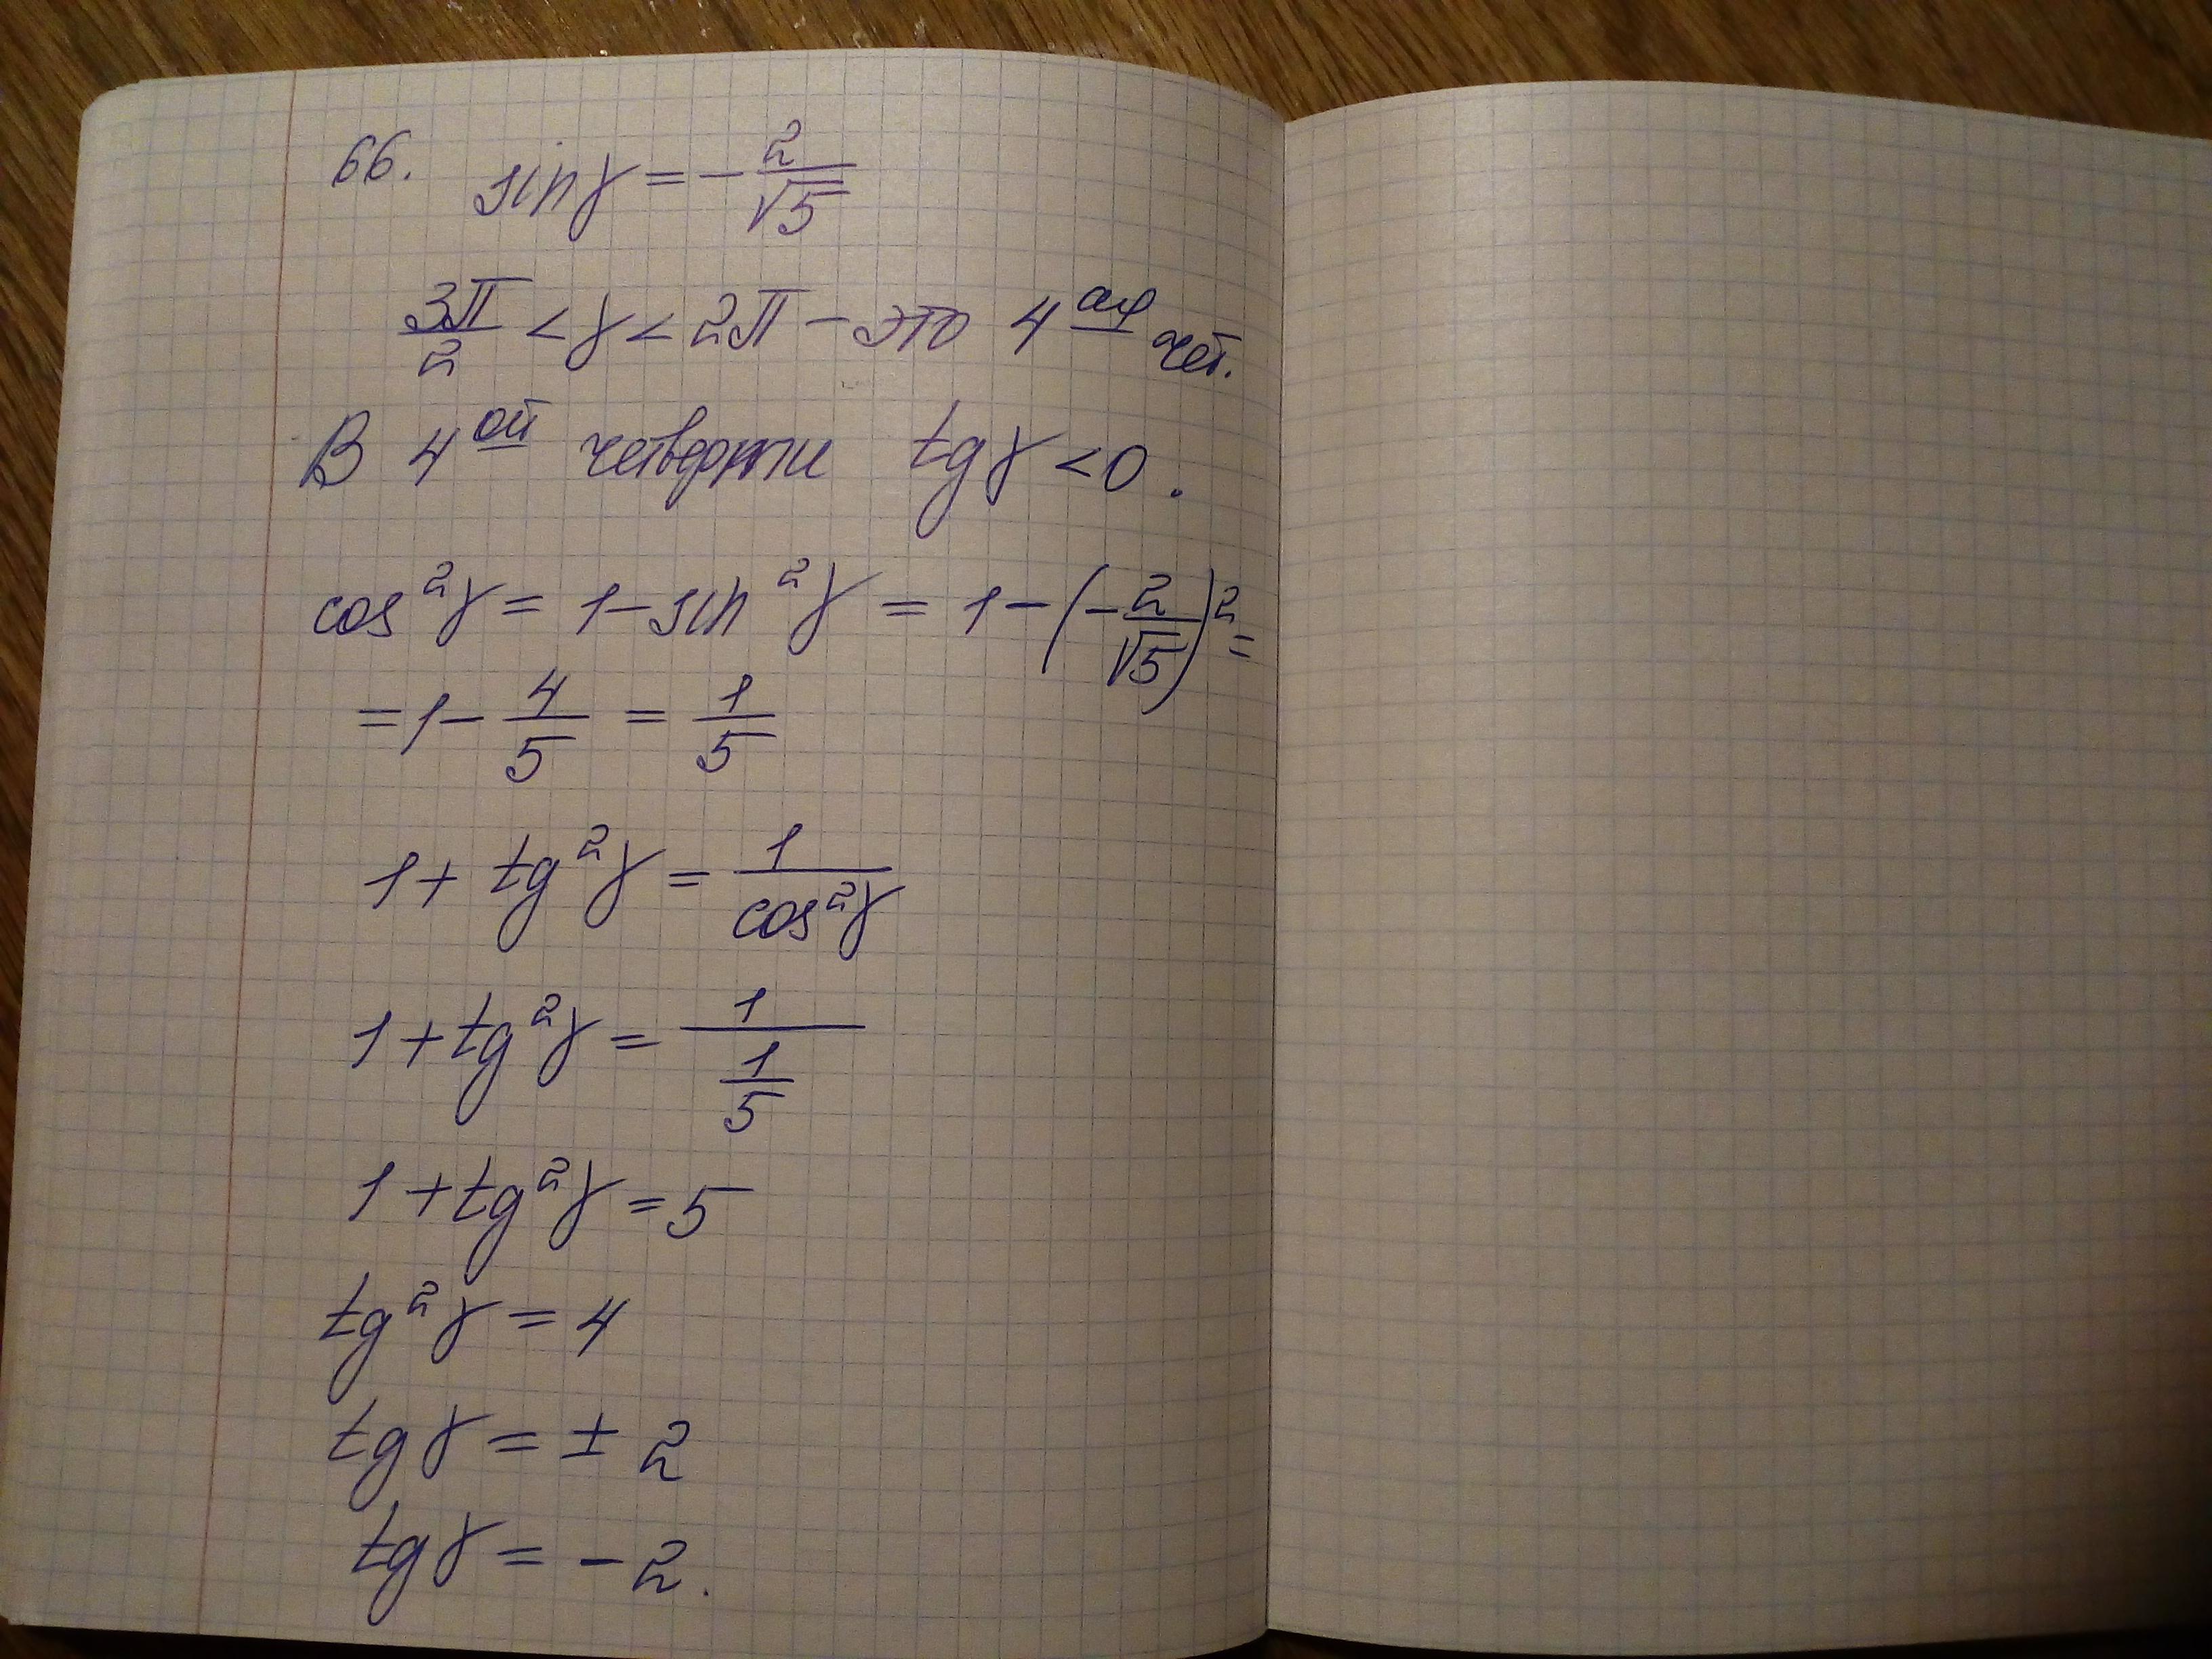 66. sin γ = - 2/√5
3π/2 < γ < 2π - это 4 ая чет.
В 4 ой четверти tg γ < 0.
cos²γ = 1 - sin²γ = 1 - (- 2/√5)² =
= 1 - 4/5 = 1/5
1 + tg²γ = 1/cos²γ
1 + tg²γ = 1/(1/5)
1 + tg²γ = 5
tg²γ = 4
tg γ = ± 2
tg γ = - 2.